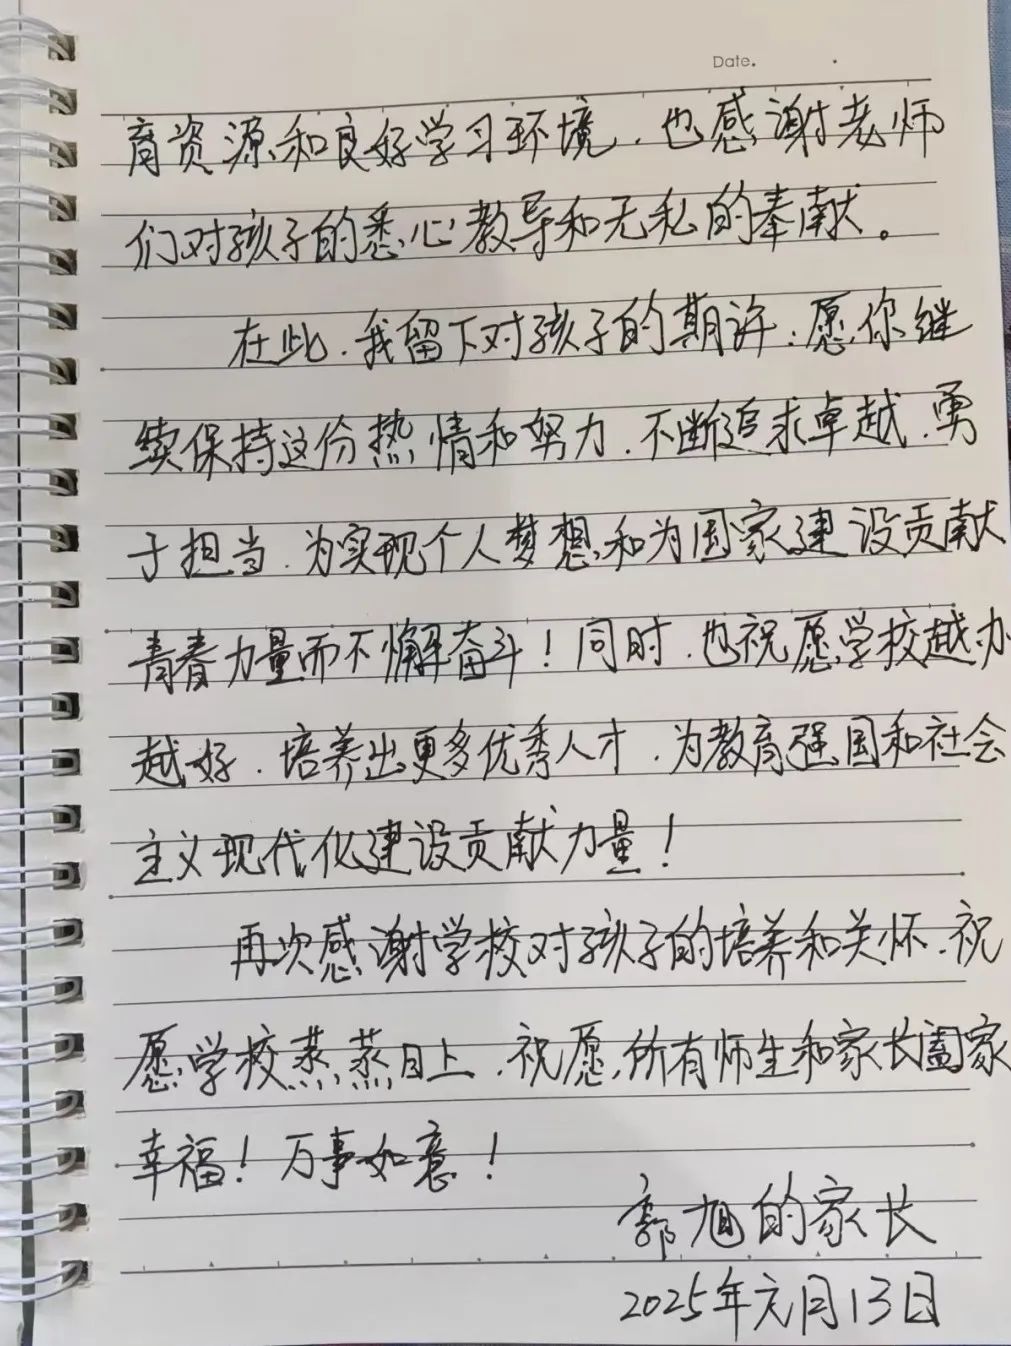 Date.
育资源和良好学习环境，也感谢老师
们对孩子的悉心教导和无私的奉献。
在此，我留下对孩子的期许：愿你继
续保持这份热情和努力，不断追求卓越，勇
于担当，为实现个人梦想和为国家建设贡献
青春力量而不懈奋斗！同时，也祝愿学校越办
越好，培养出更多优秀人才，为教育强国和社会
主义现代化建设贡献力量！
再次感谢学校对孩子的培养和关怀，祝
愿学校蒸蒸日上，祝愿所有师生和家长阖家
幸福！万事如意！
郭旭的家长
2025年元月13日